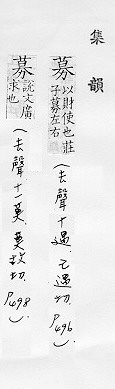 集韻
募 以財使也莊子募左右 (去聲十遇.乙遇切.P496.)
募 說文廣求也 (去聲十一莫.莫故切.P498.)